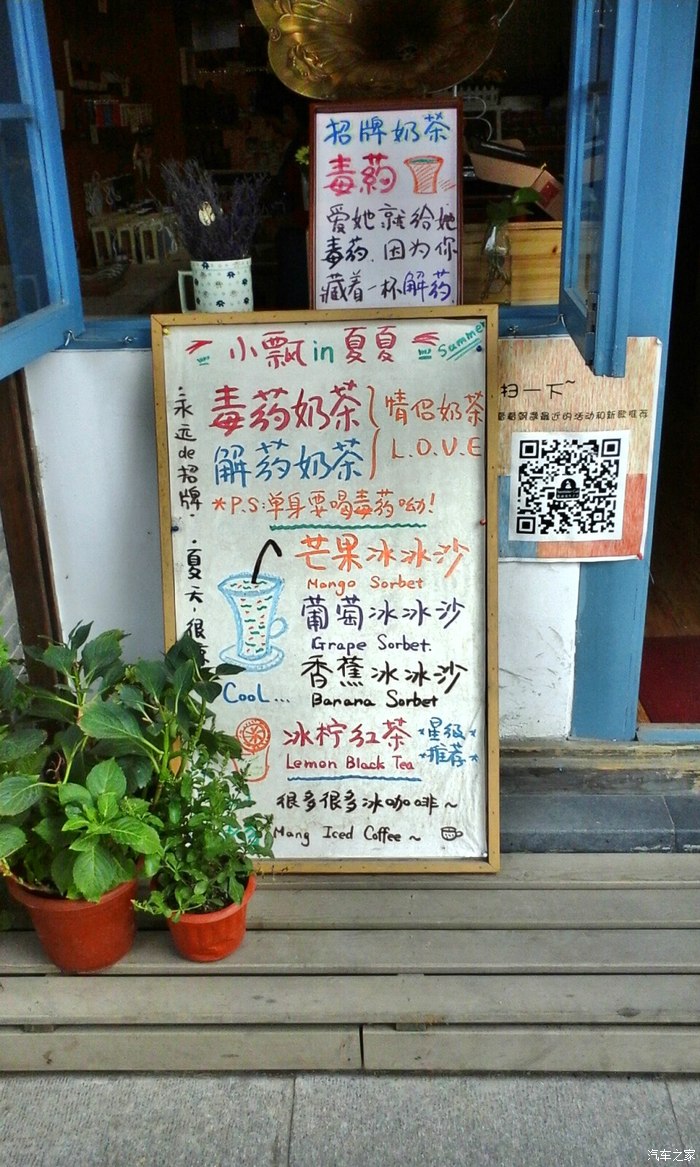 招牌奶茶
毒药
爱她就给她
毒药,因为你
藏着一杯解药
小飘in夏夏
Summer
永远de招牌.
夏天,很
毒药奶茶
解药奶茶
情侣奶茶
L.O.V.E
*P.S:单身要喝毒药呦!
芒果冰冰沙
Mango Sorbet
葡萄冰冰沙
Grape Sorbet.
香蕉冰冰沙
Banana Sorbet
COOL...
冰柠红茶
Lemon Black Tea
*星级*
*推荐*
很多很多冰咖啡~
Mang Iced Coffee ~
扫一下~
最近的活动和新歌推荐
汽车之家